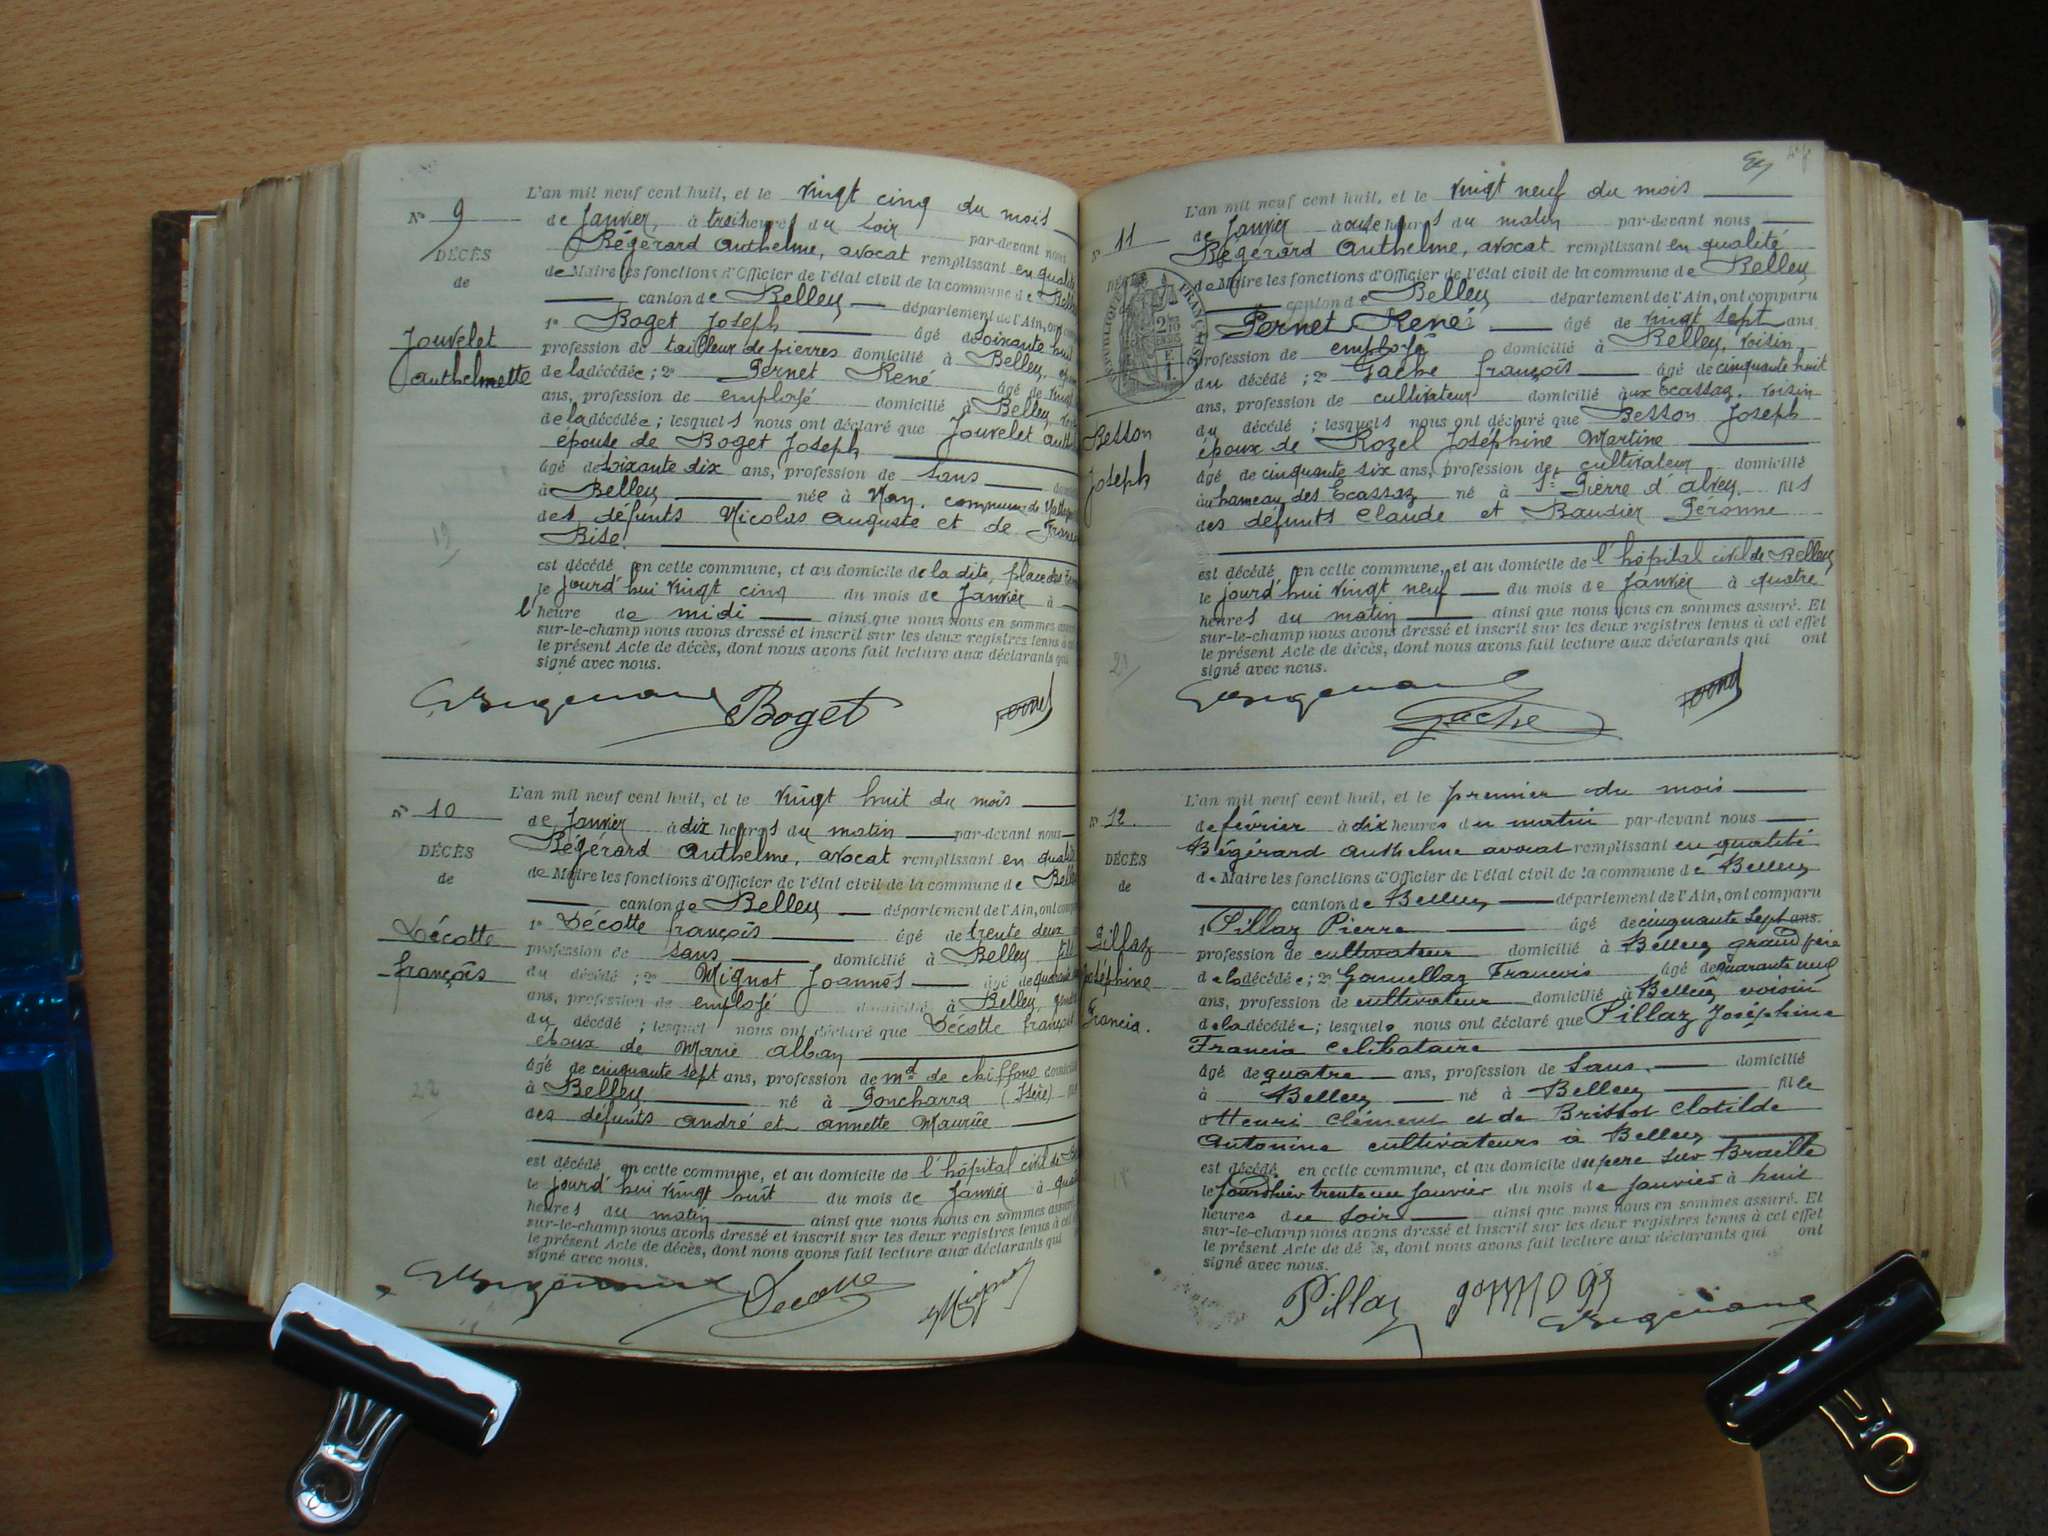 L'an mil neuf cent huit, et le vingt cinq du mois
N° 9
de Janvier, à trois heures du soir par-devant nous
Bégérard Anthelme, avocat remplissant en qualité
DÉCÈS
de Maire les fonctions d'Officier de l'état civil de la commune de
de
canton de Belley département de l'Ain, ont
1° Boget Joseph âgé de soixante huit
Jouvelet
profession de tailleur de pierres domicilié à Belley,
Anthelmette
de la décédée; 2° Pernet René âgé de
ans, profession de employé domicilié à Belley,
de la décédée; lesquels nous ont déclaré que Jouvelet
épouse de Boget Joseph
âgé de soixante dix ans, profession de sans
à Belley née à commune de
des défunts Nicolas Auguste et de
Bise.
est décédé en cette commune, et au domicile de la dite, place des
le jourd'hui vingt cinq du mois de Janvier à
l' heure de midi ainsi que nous nous en sommes
sur-le-champ nous avons dressé et inscrit sur les deux registres tenus à
le présent Acte de décès, dont nous avons fait lecture aux déclarants qui
signé avec nous.
Boget
L'an mil neuf cent huit, et le vingt huit du mois
N° 10
de Janvier à dix heures du matin par-devant nous
Bégérard Anthelme, avocat remplissant en qualité
DÉCÈS
de Maire les fonctions d'Officier de l'état civil de la commune de
de
canton de Belley département de l'Ain, ont
1° Décotte François âgé de trente deux
Décotte
profession de sans domicilié à Belley
François
du décédé; 2° Mignot Joannès âgé de
ans, profession de employé domicilié à Belley,
du décédé; lesquel nous ont déclaré que Décotte François
époux de Marie Alban
âgé de cinquante sept ans, profession de md de chiffons
à Belley né à Poncharra (Isère)
des défunts André et Annette Maurice
est décédé en cette commune, et au domicile de l'hôpital civil de
le jourd'hui vingt huit du mois de Janvier à
heures du matin ainsi que nous nous en sommes
sur-le-champ nous avons dressé et inscrit sur les deux registres tenus à cet
le présent Acte de décès, dont nous avons fait lecture aux déclarants qui
signé avec nous.
Decotte
L'an mil neuf cent huit, et le vingt neuf du mois
N° 11
de Janvier à onze heures du matin par-devant nous
Bégérard Anthelme, avocat remplissant en qualité
de Maire les fonctions d'Officier de l'état civil de la commune de Belley
canton de Belley département de l'Ain, ont comparu
Pernet René âgé de vingt sept ans
profession de employé domicilié à Belley, voisin
du décédé; 2° Gache François âgé de cinquante huit
ans, profession de cultivateur domicilié aux Ecassaz. voisin
du décédé; lesquels nous ont déclaré que Besson Joseph
Besson
époux de Rozel Joséphine Martine
Joseph
âgé de cinquante six ans, profession de cultivateur domicilié
au hameau des Ecassaz né à St Pierre d'Alvey. fils
des défunts Claude et Baudier Péronne
est décédé en cette commune, et au domicile de l'hôpital civil de Belley
le jourd'hui vingt neuf du mois de Janvier à quatre
heures du matin ainsi que nous nous en sommes assuré. Et
sur-le-champ nous avons dressé et inscrit sur les deux registres tenus à cet effet
le présent Acte de décès, dont nous avons fait lecture aux déclarants qui ont
signé avec nous.
Gache
L'an mil neuf cent huit, et le premier du mois
N° 12
de février à dix heures du matin par-devant nous
Bégérard Anthelme avocat remplissant en qualité
DÉCÈS
de Maire les fonctions d'Officier de l'état civil de la commune de Belley
de
canton de Belley département de l'Ain, ont comparu
1 Pillaz Pierre âgé de cinquante sept ans.
Pillaz
profession de cultivateur domicilié à Belley grand père
Joséphine
de la décédée; 2° François âgé de quarante neuf
ans, profession de cultivateur domicilié à Belley voisin
Francia.
de la décédée; lesquels nous ont déclaré que Pillaz Joséphine
Francia célibataire
âgé de quatre ans, profession de sans. domicilié
à Belley né à Belley fille
Henri Clément et de Brissot Clotilde
Antonine cultivateurs à Belley
est décédé en cette commune, et au domicile du père
le jourd'hier trente un Janvier du mois de janvier à huit
heures du soir ainsi que nous nous en sommes assuré. Et
sur-le-champ nous avons dressé et inscrit sur les deux registres tenus à cet effet
le présent Acte de décès, dont nous avons fait lecture aux déclarants qui ont
signé avec nous.
Pillaz